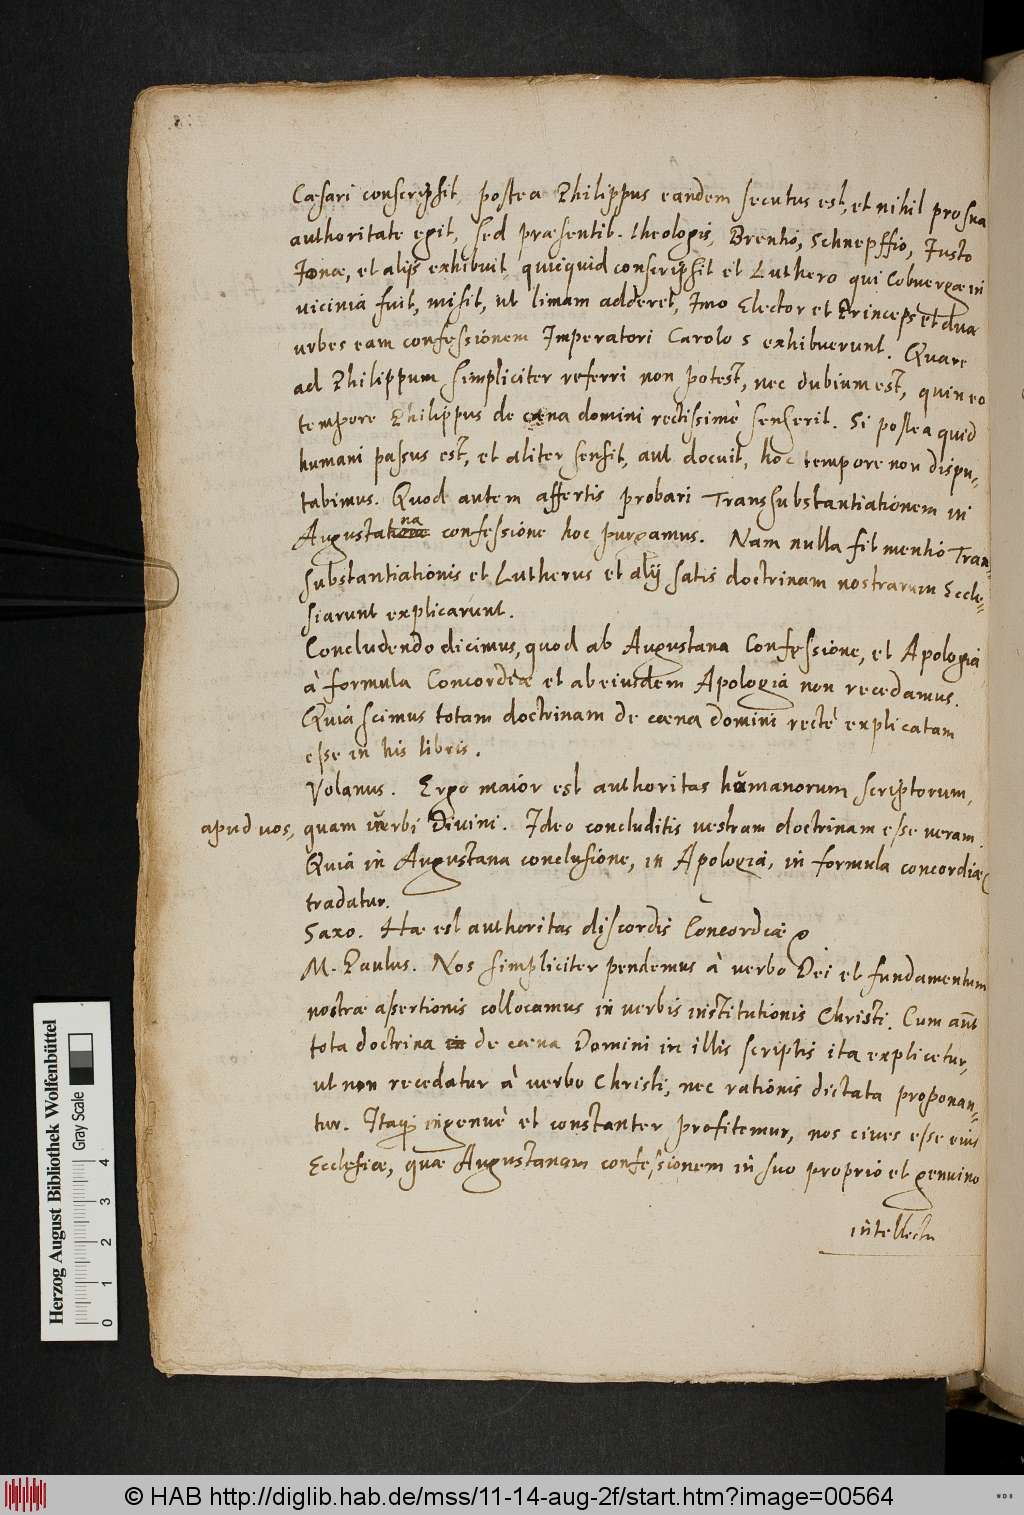 Caesari conscripsit, postea Philippus eandem secutus est, et nihil pro sua
authoritate egit, sed praesentib. theologis, Brentio, Schnepffio, Justo
Jonae, et alijs exhibuit, quicquid conscripsit et Luthero qui Cobuergae in
vicinia fuit, misit, ut limam adderet, Imo Elector et Princeps et duae
urbes eam confessionem Imperatori Carolo 5 exhibuerunt. Quare
ad Philippum simpliciter referri non potest, nec dubium est, quin eo
tempore Philippus de caena domini rectissimè senserit. Si postea quid
humani passus est, et aliter sensit, aut docuit, hoc tempore non dispu-
tabimus. Quod autem affertis probari Transsubstantiationem in
Augustana confessione hoc purgamus. Nam nulla fit mentio Tran-
substantiationis et Lutherus et alij satis doctrinam nostrarum Eccle-
siarunt explicarunt.
Concludendo dicimus, quod ab Augustana Confessione, et Apologia
à formula Concordiae et ab eiusdem Apologia non recedamus.
Quia scimus totam doctrinam de caena domini rectè explicatam
esse in his libris.
Volanus. Ergo maior est authoritas humanorum scriptorum,
apud vos, quam verbi Divini. Ideo concluditis vestram doctrinam esse veram.
Quia in Augustana conclusione, in Apologia, in formula concordiae
tradatur.
Saxo. Hae est authoritas discordis Concordiae
M. Paulus. Nos simpliciter pendemus à verbo Dei et fundamentum
nostrae assertionis collocamus in verbis institutionis Christi. Cum aut
tota doctrina de caena Domini in illis scriptis ita explicetur,
ut non recedatur à verbo Christi, nec rationis dictata proponan-
tur. Itaq ingenuè et constanter profitemur, nos cives esse eius
Ecclesiae, quae Augustanam confessionem in suo proprio et genuino
intellectu
Herzog August Bibliothek Wolfenbüttel
Gray Scale
0 1 2 3 4
© HAB http://diglib.hab.de/mss/11-14-aug-2f/start.htm?image=00564